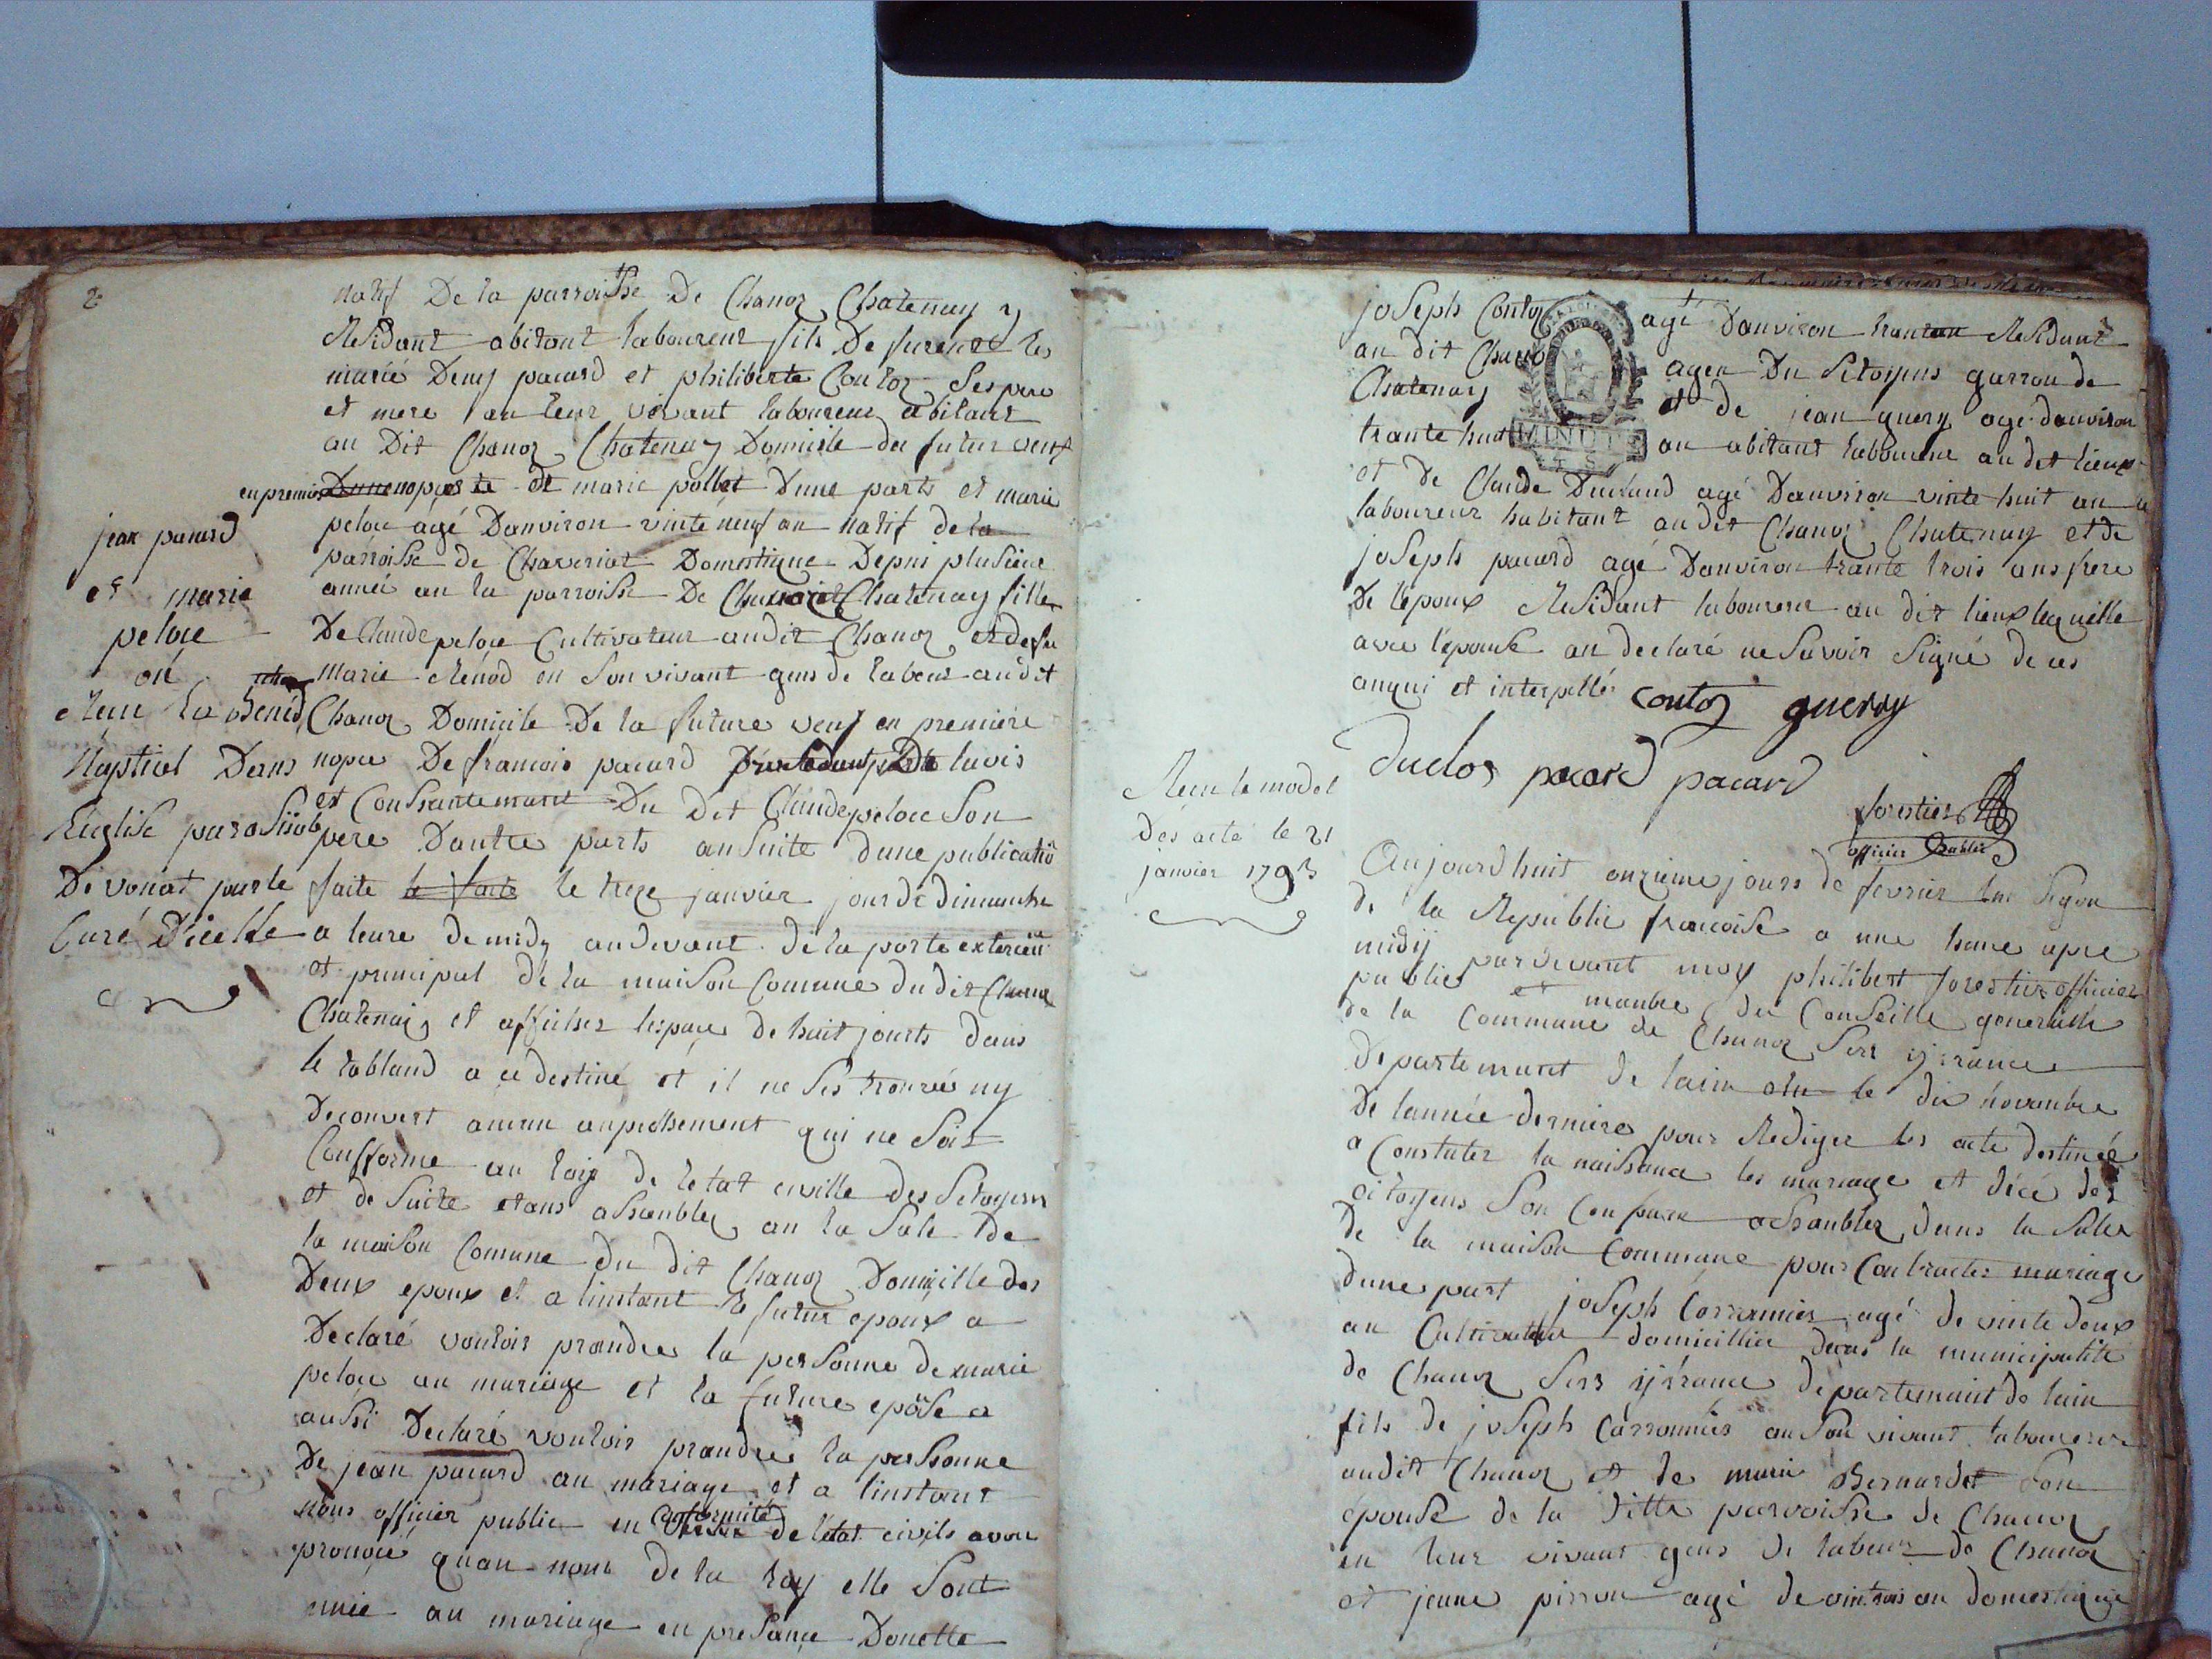 2
natif De la parroisse De Chanoz Chatenay
Residant abitant laboureur fils De furent les
marié Deny pacard et philiberte Contoz Ses pere
et mere an leur vivant laboureur abitant
au Dit Chanoz Chatenay Domicile du futur veuf
en premier nopces de marie pollet Dune parts et marie
peloue agé Danviron vinte neuf an natif de la
parroisse de Chaveriat Domestique Depui plusieur
anneé an la parroisse De Chanoz Chatenay fille
De Claude peloue Cultivateur audit Chanoz et defu
marie Renod en Son vivant gens de labeur audit
Chanoz Domicile De la future veuf en premiere
nopce De francois pacard lavis
et Consantemant Du Dit Claude peloue Son
pere Dautre parts ansuite dune publicatio
faite le faite le treze janvier jour de dimanche
a leure de midy audevant de la porte exterieu
et principal de la maison Comune du dit Chanoz
Chatenay et afficher lespace de huit jourts dans
le tabland a ce destiné et il ne Ses trouvé ny
decouvert aucun anpechement qui ne Soit
Confforme au loix de letat civille des Setoyens
et de Suite etans assembler an la Sale De
la maison Comune du dit Chanoz Domicille des
Deux epoux et a linstant le futur epoux a
Declaré vouloir prandre la personne de marie
peloue an mariage et la future epose a
aussi Declaré vouloir prandre la perssonne
De jean pacard an mariage et a linstant
nous officier public en Conformité de letat civils avon
pronocé quau nom De la loy elle Sont
unie an mariage en presance Donette
jean pacard
et marie
peloue
on
Recu la Bened
Nuptiel Dans
Leglise parosiiale
De vonat par le
Curé Dicelle
joseph Contoz agé Danviron trantan Residant
au dit Chanoz
Chatenay agen Du Sitoyens garron de
et de jean guery age danviron
trante huit an abitant laboureur au dit lieux
MINUTE
et De Claude Duclaud agé Danviron vinte huit an
laboureur habitant audit Chanoz Chatenay et de
joseph pacard agé Danviron trante trois ans frere
De lepoux Residant laboureur au dit lieux lequelle
avec lepouse an declaré ne Savoir Signé de ces
anqui et interpellé contoz guerry
duclos pacard pacard
forestier
officier public
Recu le model
Des acte le 21
janvier 1793
Aujourdhuit onzieme jours de fevrier lan Segon
de la Republic francoise a une heure apre
midy pardevant moy philibert forestier officier
public et manbre du Conseille generalle
de la Commune de Chanoz Surs ijrance
departemant de lain elu le dix novanbre
De lannée derniere pour Rediger les acte destinée
a Constater la naissance les mariage et décé des
citoyens Son Conparu assanbler dans la Salle
de la maison Commune pour Contracter mariage
dune part joseph Corronnier agé de vinte deux
an Cultivateur domicillier dans la municipalité
de Chanoz Surs ijrance departemant de lain
fils de joseph Carronnier an Son vivant laboureur
audit Chanoz et de marie Bernardet Son
épouse de la Ditte parroisse de Chanoz
en leur vivant gens de labeur de Chanoz
et jeanne pirron agé de vint trois an domestique